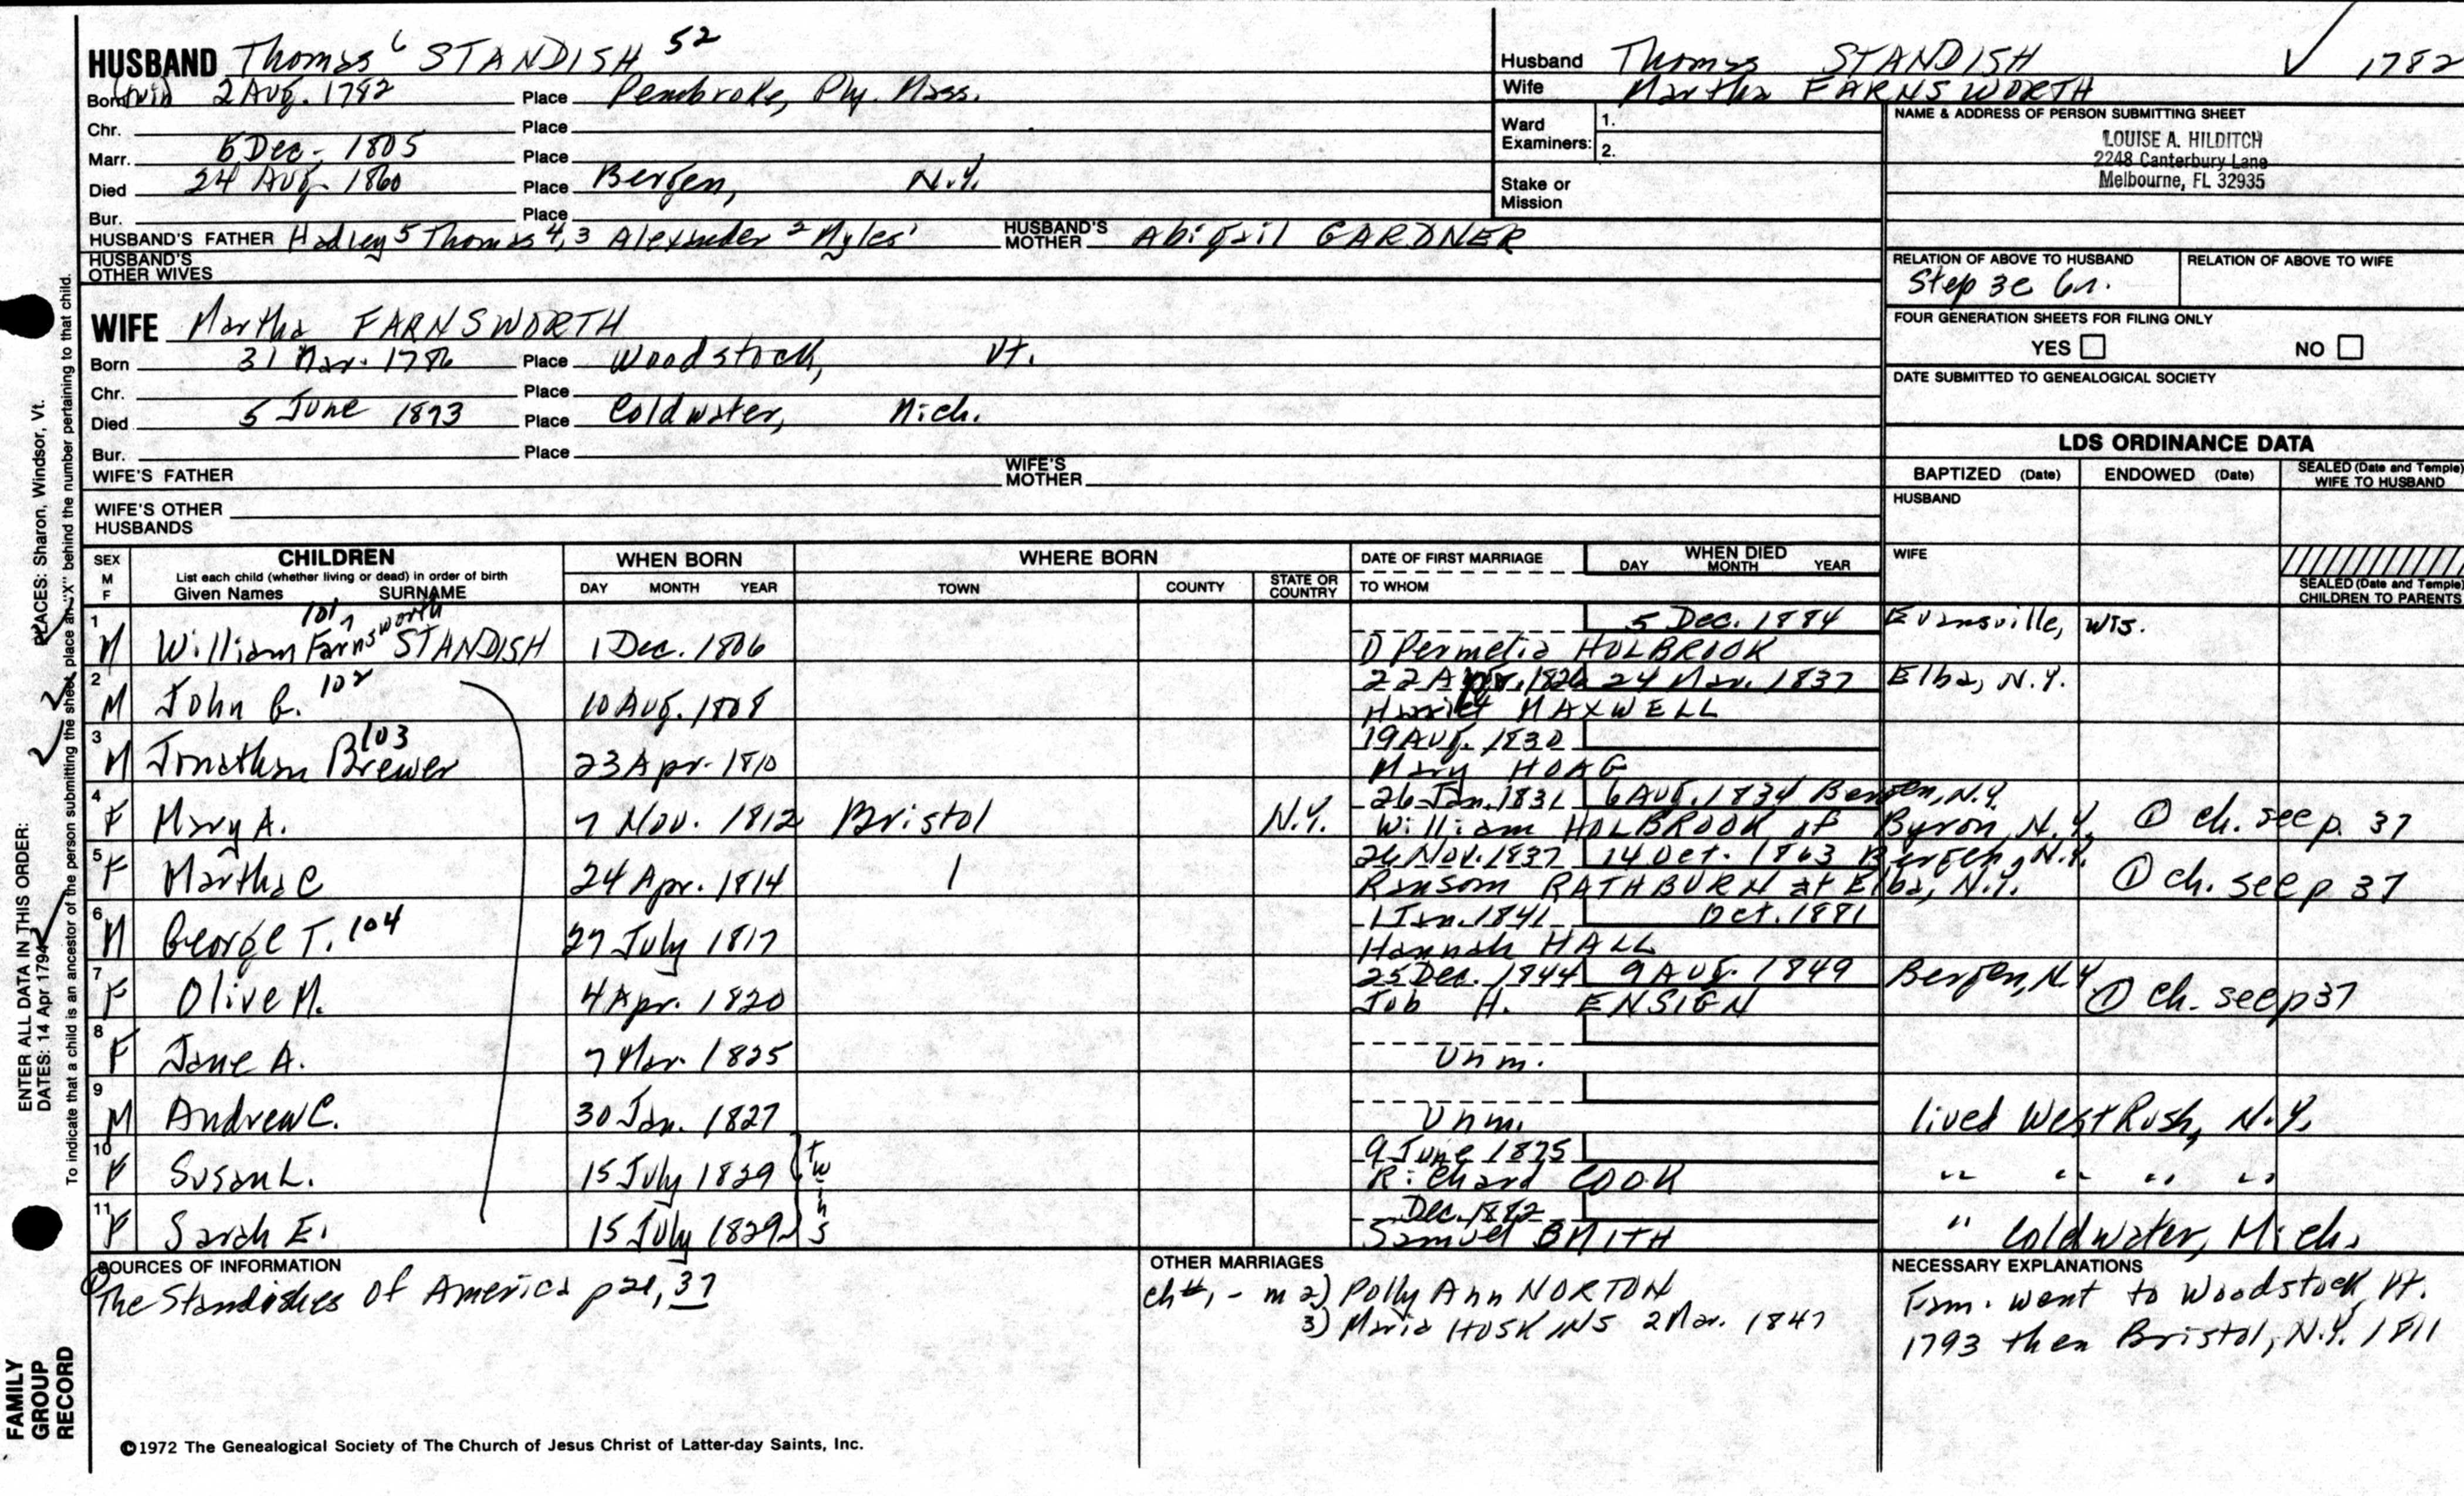 HUSBAND Thomas 6 STANDISH 52
Born (twin) 2 Aug. 1782 Place Pembroke, Ply. Mass.
Chr. Place
Marr. 5 Dec. 1805 Place
Died 24 Aug. 1860 Place Bergen, N.Y.
Bur. Place
HUSBAND'S FATHER Hadley 5 Thomas 4,3 Alexander 2 Myles 1 HUSBAND'S MOTHER Abigail GARDNER
HUSBAND'S OTHER WIVES
Husband Thomas STANDISH ✓ 1782
Wife Martha FARNSWORTH
Ward Examiners: 1.
2.
Stake or Mission
NAME & ADDRESS OF PERSON SUBMITTING SHEET
LOUISE A. HILDITCH
2248 Canterbury Lane
Melbourne, FL 32935
RELATION OF ABOVE TO HUSBAND RELATION OF ABOVE TO WIFE
Step 3c 6r.
FOUR GENERATION SHEETS FOR FILING ONLY
YES NO
DATE SUBMITTED TO GENEALOGICAL SOCIETY
WIFE Martha FARNSWORTH
Born 31 Mar. 1786 Place Woodstock, Vt.
Chr. Place
Died 5 June 1873 Place Coldwater, Mich.
Bur. Place
WIFE'S FATHER WIFE'S MOTHER
WIFE'S OTHER HUSBANDS
LDS ORDINANCE DATA
BAPTIZED (Date) ENDOWED (Date) SEALED (Date and Temple) WIFE TO HUSBAND
HUSBAND
WIFE
SEALED (Date and Temple) CHILDREN TO PARENTS
SEX M F CHILDREN WHEN BORN WHERE BORN DATE OF FIRST MARRIAGE WHEN DIED
List each child (whether living or dead) in order of birth
Given Names SURNAME DAY MONTH YEAR TOWN COUNTY STATE OR COUNTRY TO WHOM DAY MONTH YEAR
101
1 5 Dec. 1884 Evansville, Wis.
M William Farnsworth STANDISH 1 Dec. 1806 Permelia HOLBROOK
2 22 Apr. 1826 24 Mar. 1837 Elba, N.Y.
M John G. 102 10 Aug. 1808 Harriet MAXWELL
3 19 Aug. 1830
M Jonathan Brewer 103 23 Apr. 1810 Mary HOAG
4 26 Jan. 1831 6 Aug. 1834 Bergen, N.Y.
F Mary A. 7 Nov. 1812 Bristol N.Y. William HOLBROOK of Byron, N.Y. ① ch. see p. 37
5 26 Nov. 1837 14 Oct. 1863 Bergen, N.Y.
F Martha C 24 Apr. 1814 Ransom RATHBURN at Elba, N.Y. ① ch. see p 37
6 1 Jan. 1841 Oct. 1881
M George T. 104 27 July 1817 Hannah HALL
7 25 Dec. 1844 9 Aug. 1849 Bergen, N.Y
F Olive M. 4 Apr. 1820 Job H. ENSIGN ① ch. see p 37
8
F Jane A. 7 Mar. 1825 Unm.
9
M Andrew C. 30 Jan. 1827 Unm. lived West Rush, N.Y.
10 9 June 1875
F Susan L. 15 July 1829 twins Richard COOK " " " "
11 Dec. 1872
F Sarah E. 15 July 1829 Samuel SMITH " Coldwater, Mich.
SOURCES OF INFORMATION
① The Standishes of America p 21, 37
OTHER MARRIAGES
ch #1 - m 2) Polly Ann NORTON
3) Maria HOSKINS 2 Mar. 1847
NECESSARY EXPLANATIONS
Fam. went to Woodstock, Vt.
1793 then Bristol, N.Y. 1811
©1972 The Genealogical Society of The Church of Jesus Christ of Latter-day Saints, Inc.
FAMILY GROUP RECORD
ENTER ALL DATA IN THIS ORDER:
DATES: 14 Apr 1794 PLACES: Sharon, Windsor, Vt.
To indicate that a child is an ancestor of the person submitting the sheet, place an "X" behind the number pertaining to that child.